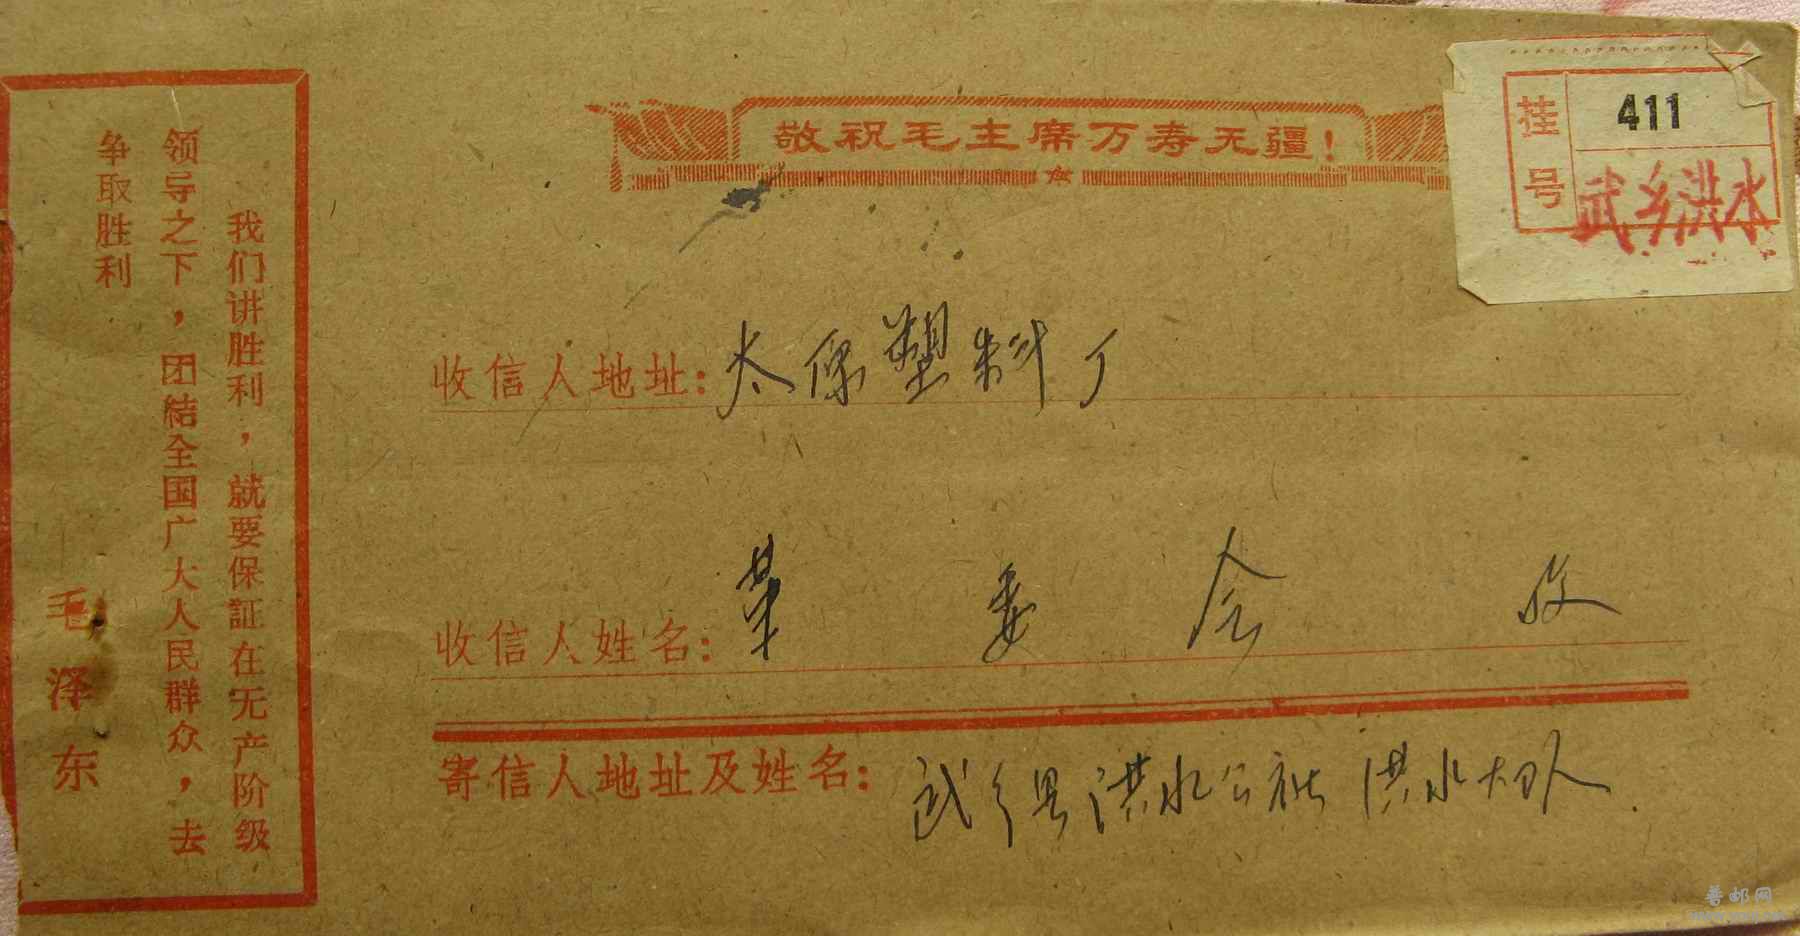 敬祝毛主席万寿无疆！
挂号
411
武乡洪水
我们讲胜利，就要保証在无产阶级
领导之下，团結全国广大人民群众，去
争取胜利
毛泽东
收信人地址：太原塑料厂
收信人姓名：革委会收
寄信人地址及姓名：武乡县洪水公社洪水大队
普邮网